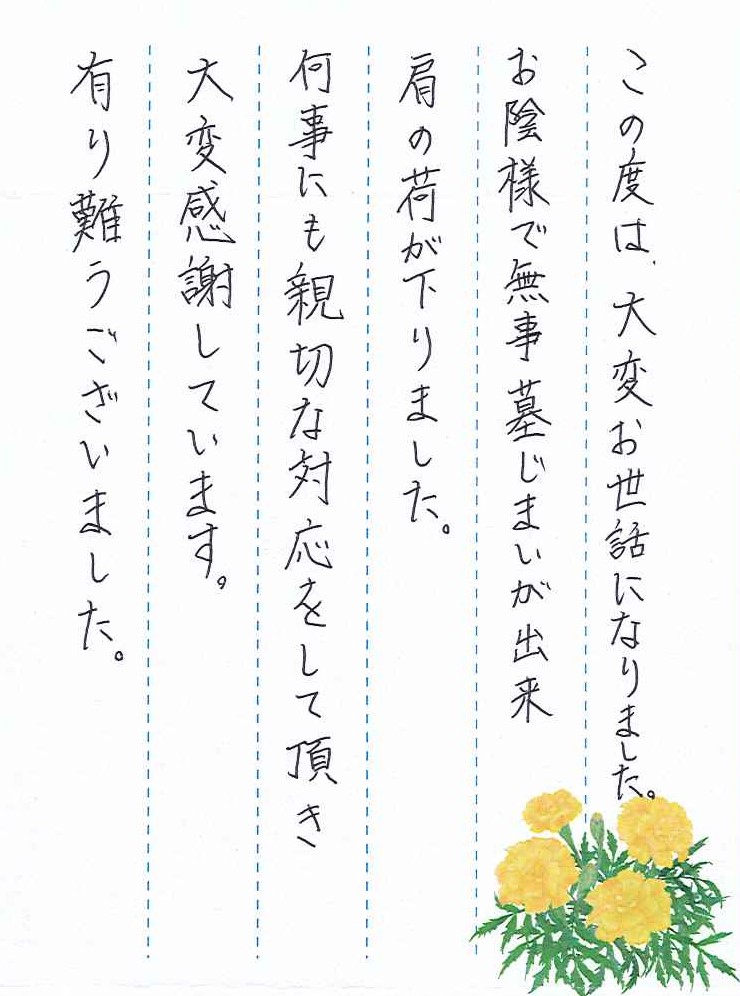 この度は、大変お世話になりました。
お陰様で無事墓じまいが出来
肩の荷が下りました。
何事にも親切な対応をして頂き
大変感謝しています。
有り難うございました。